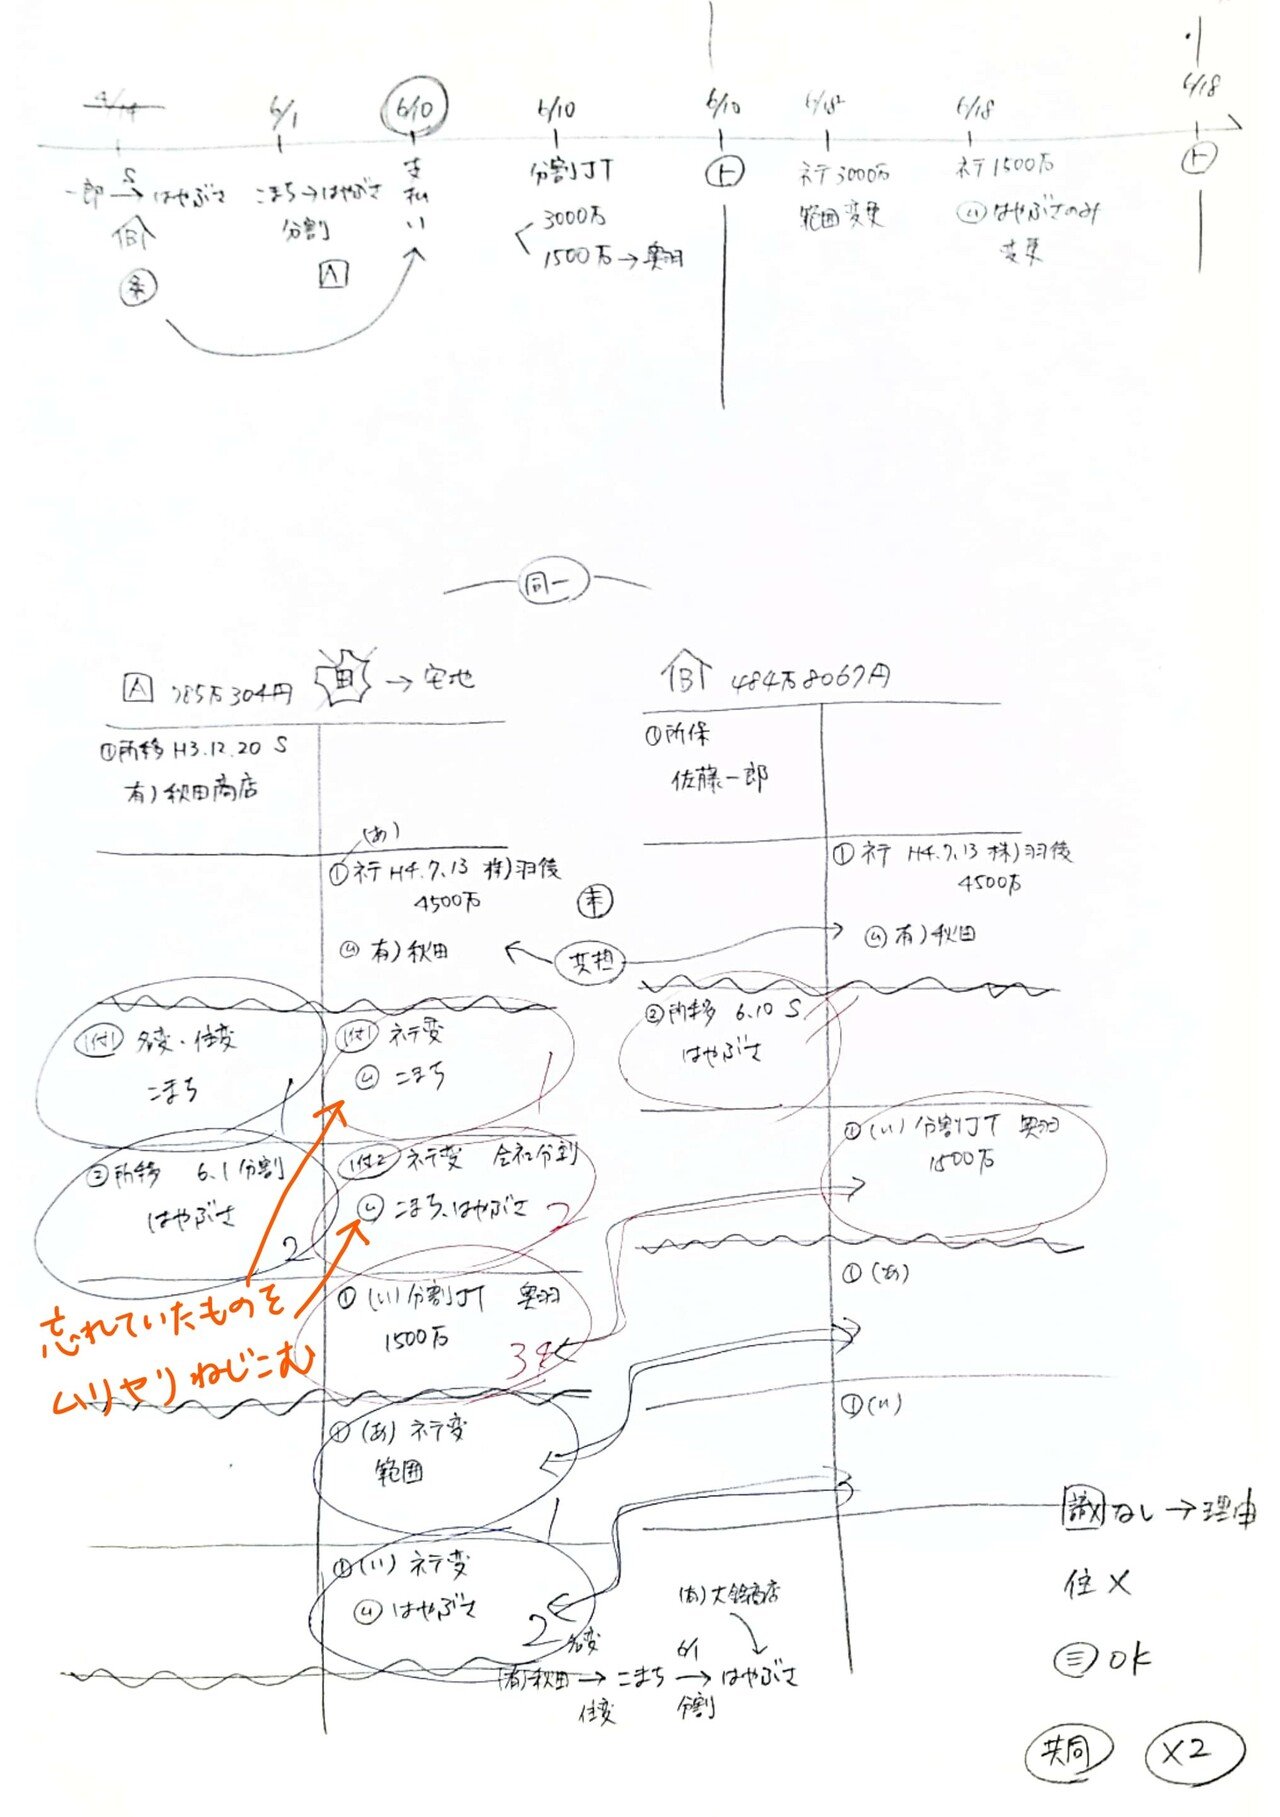 4/14
6/1
6/10
6/10
6/10
6/18
6/18
6/18
一郎 S→ はやぶさ
B
こまち→はやぶさ
分割
A
支払い
分割JT
3000万
1500万→奥羽
ト
ネテ3000万
範囲変更
ネテ1500万
はやぶさのみ
変更
ト
同一
A 785万304円 田 →宅地
①所移 H3.12.20 S
有)秋田商店
(あ)
①ネテ H4.7.13 株)羽後
4500万
有)秋田
共担
付1 名変・住変
こまち
1
付1 ネテ変
こまち
1
②所移 6.1分割
はやぶさ
2
付2 ネテ変 会社分割
こまち、はやぶさ
2
①(い)分割JT 奥羽
1500万
3
忘れていたものを
ムリヤリねじこむ
①(あ)ネテ変
範囲
1
①(い)ネテ変
はやぶさ
2
B 484万8067円
①所保
佐藤一郎
①ネテ H4.7.13 株)羽後
4500万
有)秋田
②所移 6.10 S
はやぶさ
①(い)分割JT 奥羽
1500万
①(あ)
①(い)
識なし→理由
住×
OK
共同 ×2
(有)大館商店
(有)秋田→こまち→はやぶさ
名変
住変
6/1
分割